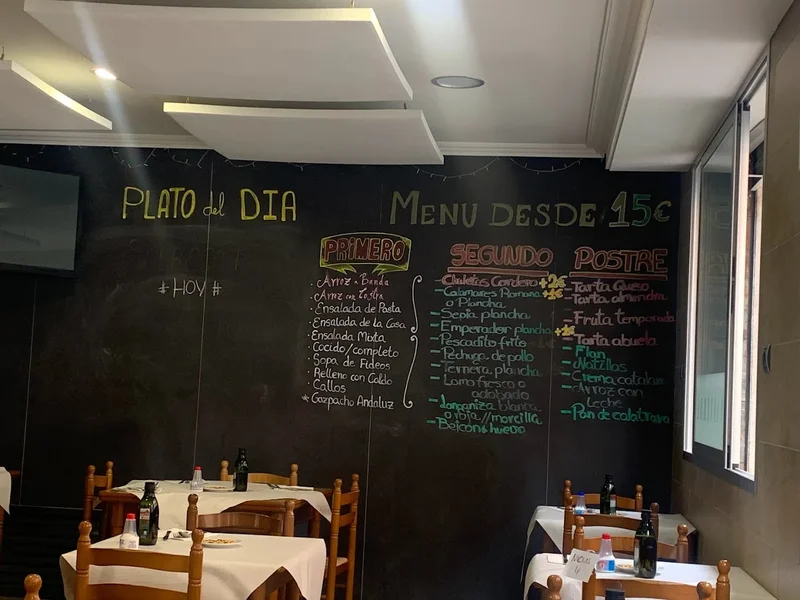 PLATO del DIA
# HOY #
MENU DESDE 15€
PRIMERO
· Arroz a Banda
· Arroz con Costra
· Ensalada de Pasta
· Ensalada de la Casa
· Ensalada Mixta
· Cocido/completo
· Sopa de Fideos
· Relleno con Caldo
· Callos
* Gazpacho Andaluz
SEGUNDO
- Chuletas Cordero +2€
- Calamares Romana
o Plancha
- Sepia plancha
- Emperador plancha
- Pescadito frito
- Pechuga de pollo
- Ternera plancha
- Lomo fresco o
adobado
- Longaniza blanca
o roja // morcilla
- Beicon & huevo
POSTRE
- Tarta Queso
- Tarta almendra
- Fruta temporada
- Tarta abuela
- Flan
- Natillas
- Crema catalana
- Arroz con
Leche
- Pan de calatrava